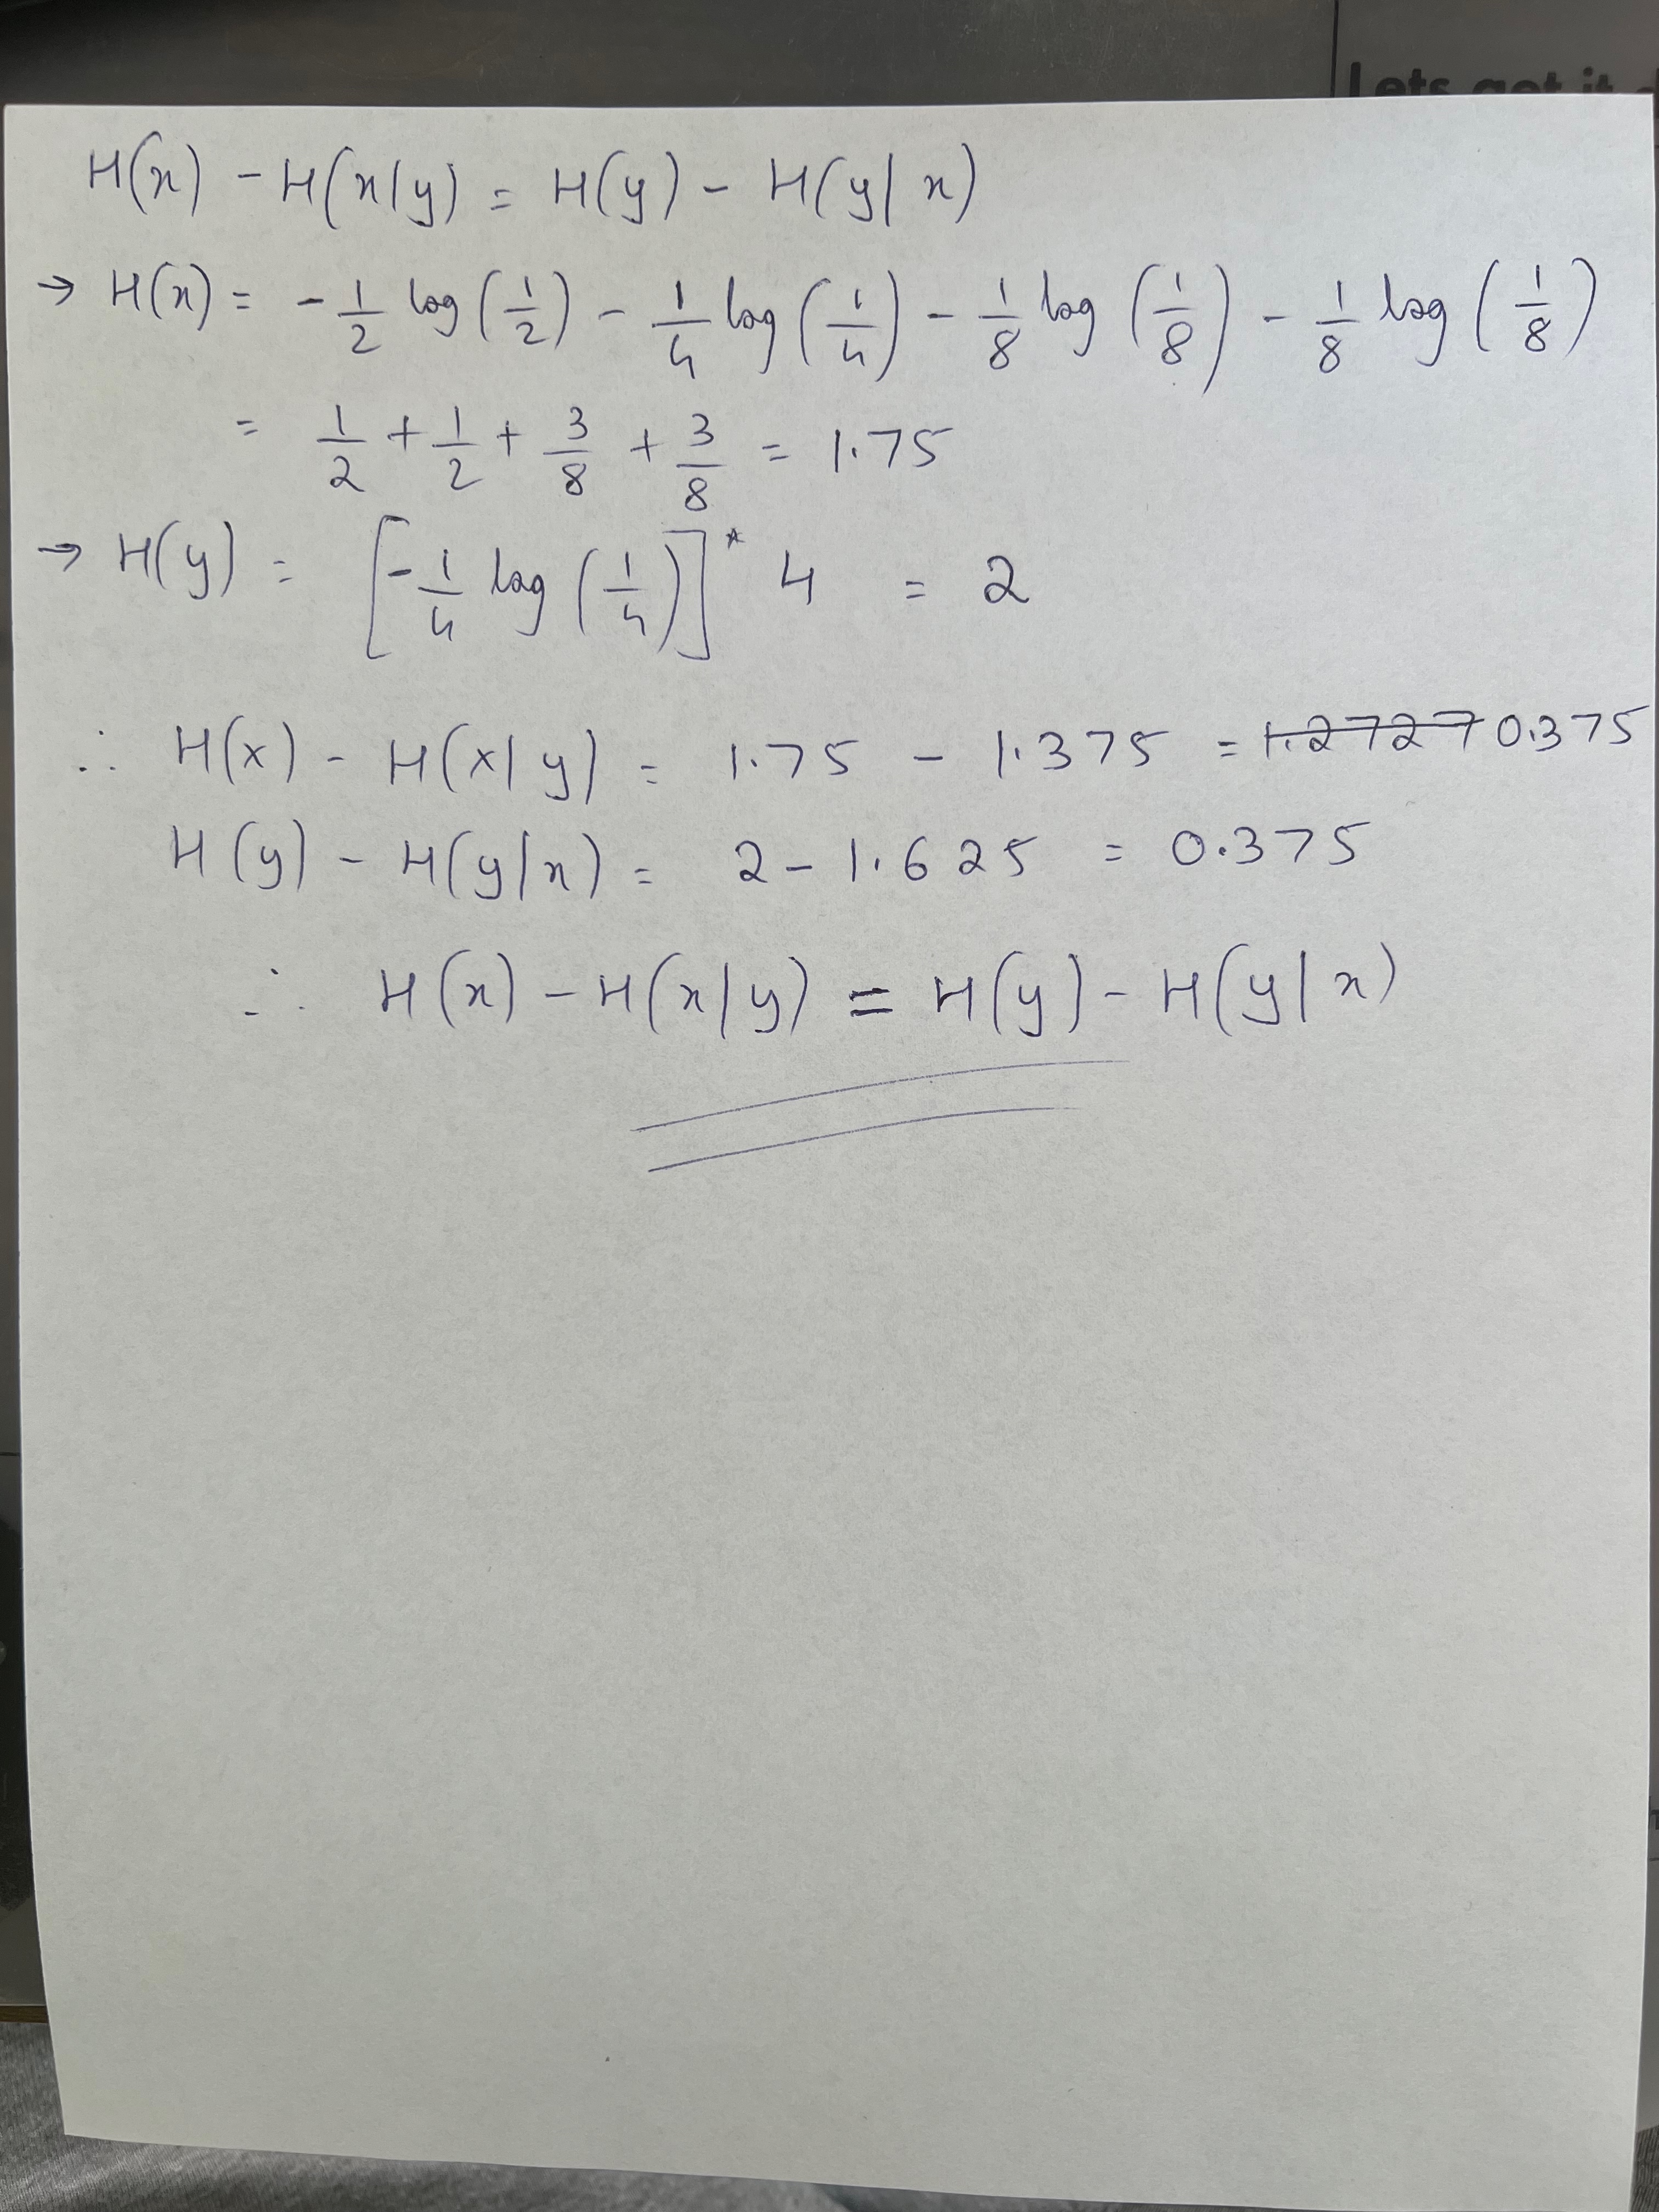 Lets get it
H(x) - H(x|y) = H(y) - H(y|x)
→ H(x) = -1/2 log(1/2) - 1/4 log(1/4) - 1/8 log(1/8) - 1/8 log(1/8)
= 1/2 + 1/2 + 3/8 + 3/8 = 1.75
→ H(y) = [-1/4 log(1/4)] * 4 = 2
∴ H(x) - H(x|y) = 1.75 - 1.375 = 1.2727 0.375
H(y) - H(y|x) = 2 - 1.625 = 0.375
∴ H(x) - H(x|y) = H(y) - H(y|x)